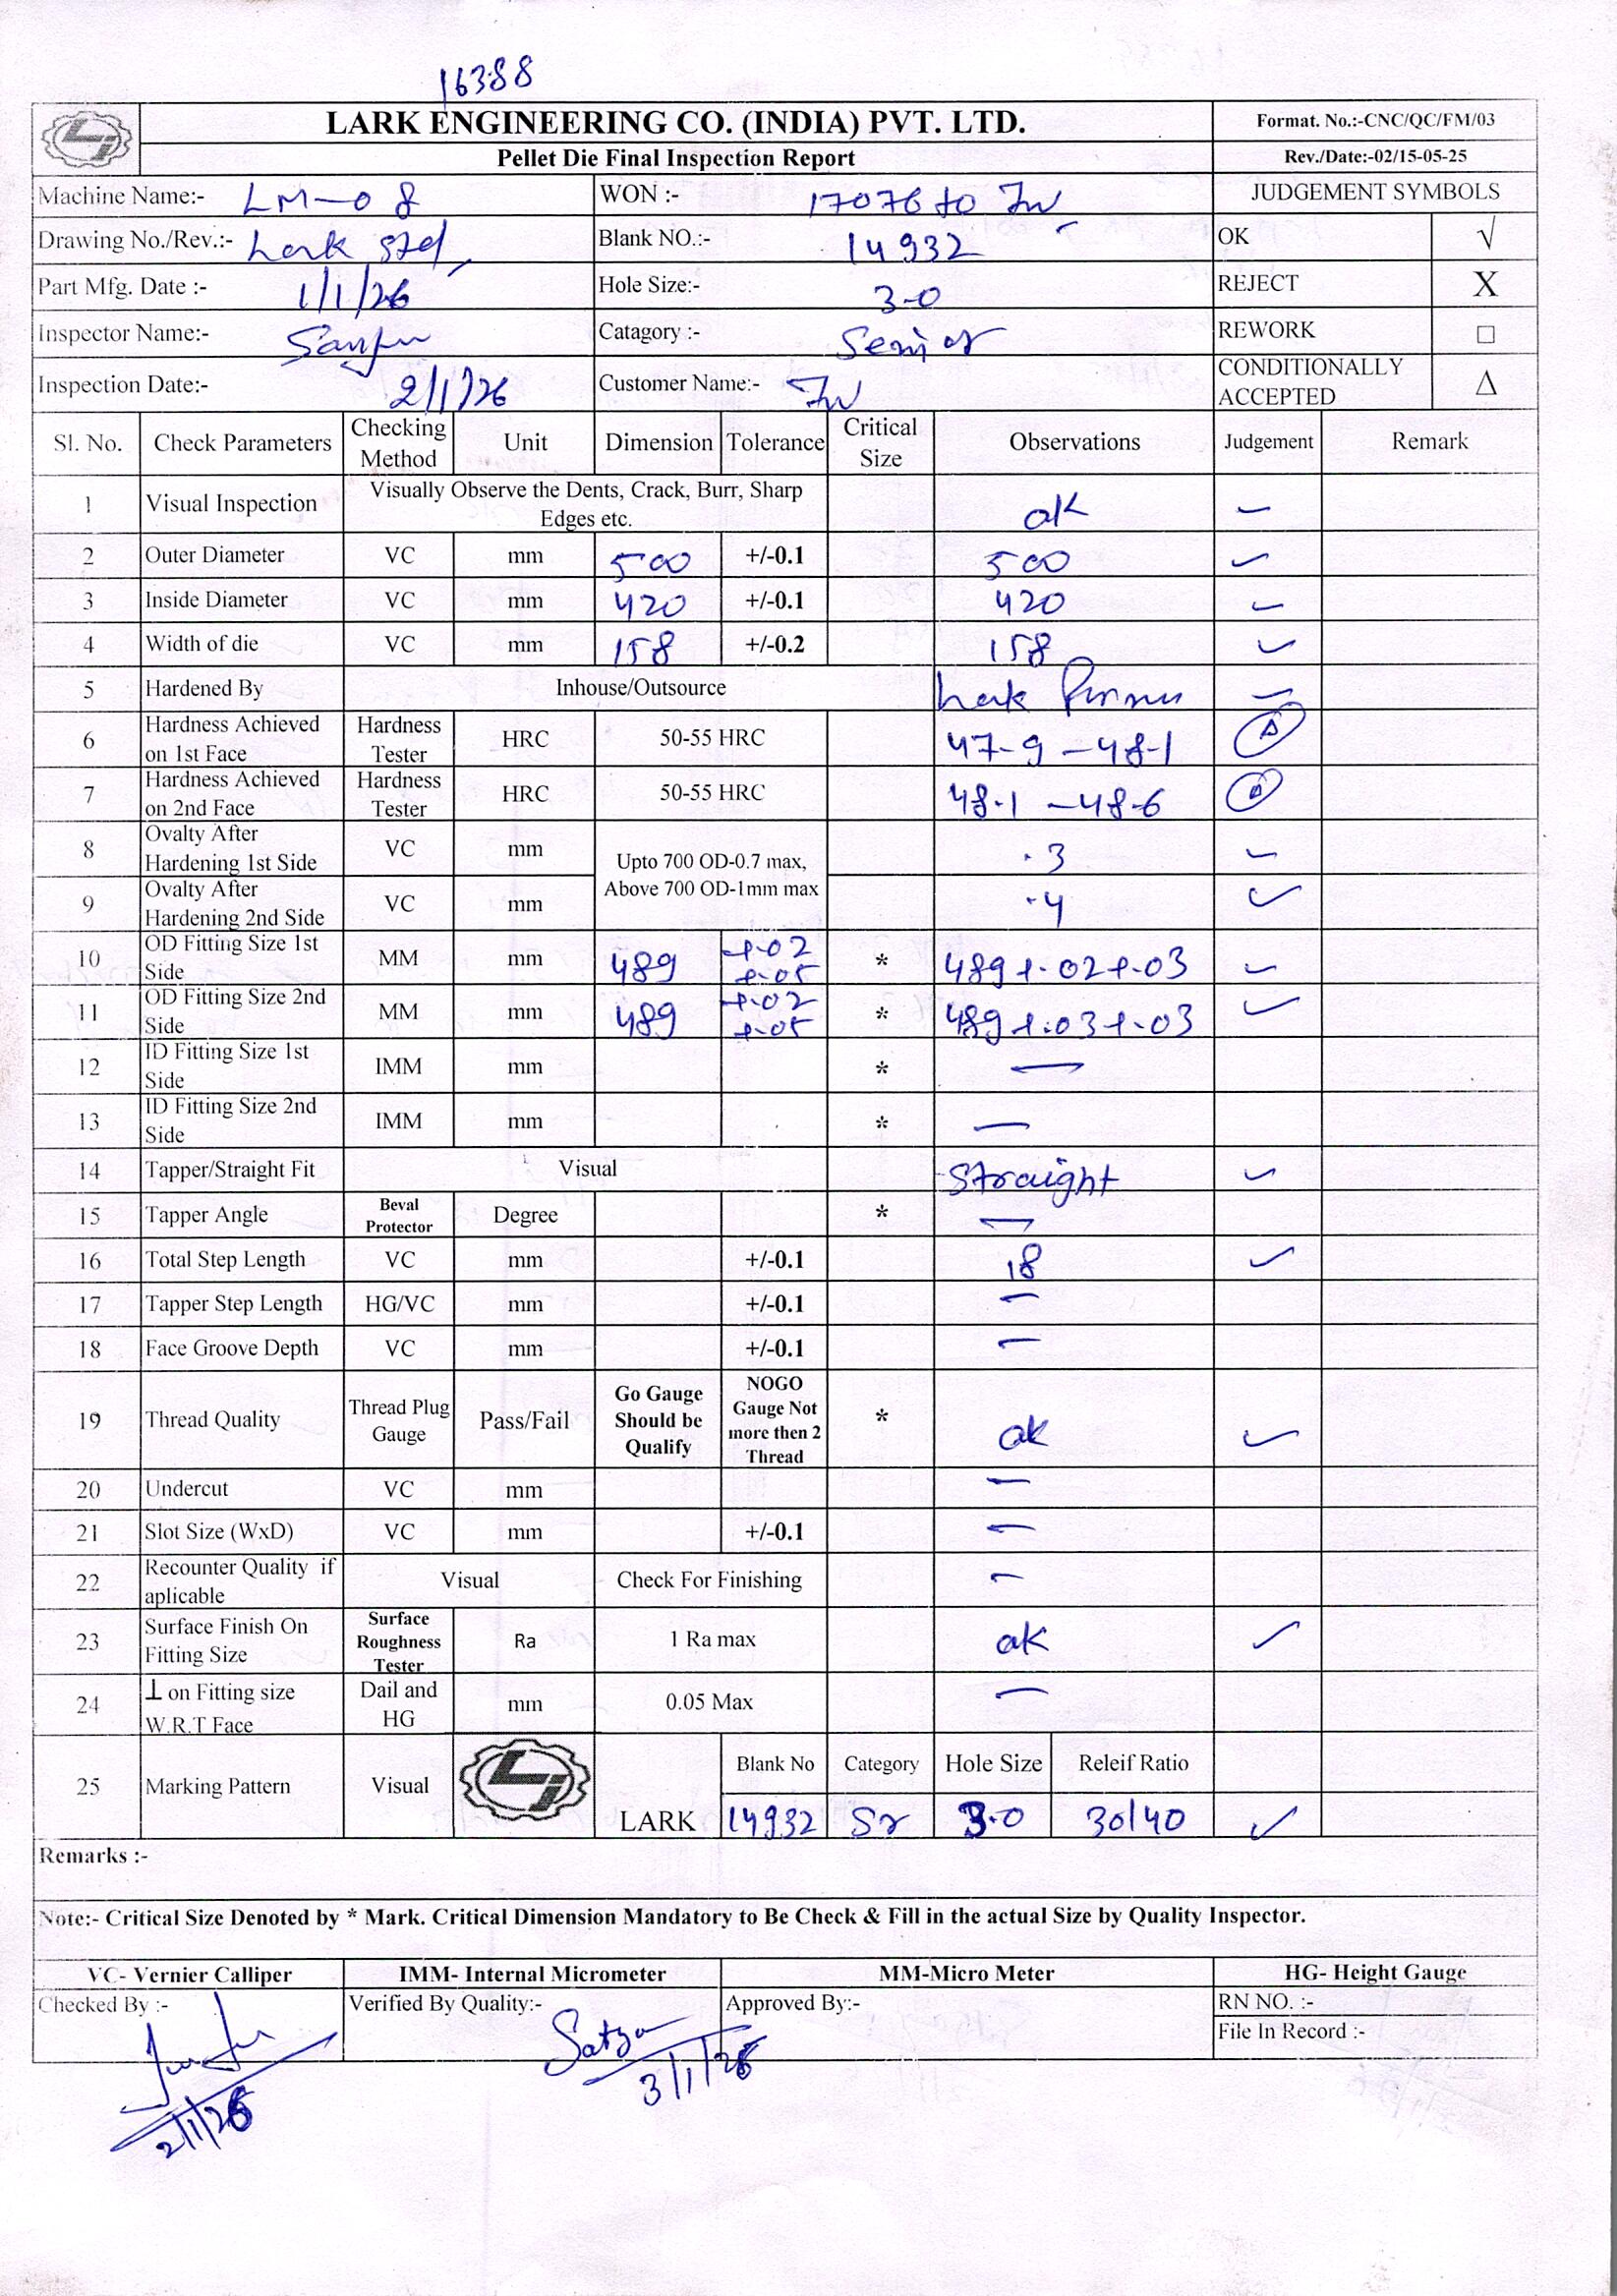 16388
LARK ENGINEERING CO. (INDIA) PVT. LTD.
Format. No.:-CNC/QC/FM/03
Pellet Die Final Inspection Report
Rev./Date:-02/15-05-25
Machine Name:- LM-08 WON :- 17076 to JW JUDGEMENT SYMBOLS
Drawing No./Rev.:- Lark Std, Blank NO.:- 14932 OK √
Part Mfg. Date :- 1/1/26 Hole Size:- 3-0 REJECT X
Inspector Name:- Catagory :- Senior REWORK □
Inspection Date:- 2/1/26 Customer Name:- JW CONDITIONALLY ACCEPTED Δ
Sl. No. Check Parameters Checking Method Unit Dimension Tolerance Critical Size Observations Judgement Remark
1 Visual Inspection Visually Observe the Dents, Crack, Burr, Sharp Edges etc. ok ✓
2 Outer Diameter VC mm 500 +/-0.1 500 ✓
3 Inside Diameter VC mm 420 +/-0.1 420 ✓
4 Width of die VC mm 158 +/-0.2 158 ✓
5 Hardened By Inhouse/Outsource Lark ✓
6 Hardness Achieved on 1st Face Hardness Tester HRC 50-55 HRC 47-9 - 48-1 Δ
7 Hardness Achieved on 2nd Face Hardness Tester HRC 50-55 HRC 48.1 - 48-6 Δ
8 Ovalty After Hardening 1st Side VC mm Upto 700 OD-0.7 max, Above 700 OD-1mm max .3 ✓
9 Ovalty After Hardening 2nd Side VC mm .4 ✓
10 OD Fitting Size 1st Side MM mm 489 +.02 +.05 * 489 +.02 +.03 ✓
11 OD Fitting Size 2nd Side MM mm 489 +.02 +.05 * 489 +.03 +.03 ✓
12 ID Fitting Size 1st Side IMM mm * —
13 ID Fitting Size 2nd Side IMM mm * —
14 Tapper/Straight Fit Visual Straight ✓
15 Tapper Angle Beval Protector Degree * —
16 Total Step Length VC mm +/-0.1 18 ✓
17 Tapper Step Length HG/VC mm +/-0.1 —
18 Face Groove Depth VC mm +/-0.1 —
19 Thread Quality Thread Plug Gauge Pass/Fail Go Gauge Should be Qualify NOGO Gauge Not more then 2 Thread * ok ✓
20 Undercut VC mm —
21 Slot Size (WxD) VC mm +/-0.1 —
22 Recounter Quality if aplicable Visual Check For Finishing —
23 Surface Finish On Fitting Size Surface Roughness Tester Ra 1 Ra max ok ✓
24 ⊥ on Fitting size W.R.T Face Dail and HG mm 0.05 Max —
25 Marking Pattern Visual LARK Blank No Category Hole Size Releif Ratio
14932 Sr 3.0 30/40 ✓
Remarks :-
Note:- Critical Size Denoted by * Mark. Critical Dimension Mandatory to Be Check & Fill in the actual Size by Quality Inspector.
VC- Vernier Calliper IMM- Internal Micrometer MM-Micro Meter HG- Height Gauge
Checked By :- Verified By Quality:- Approved By:- RN NO. :-
File In Record :-
Satya
3/1/26
2/1/26